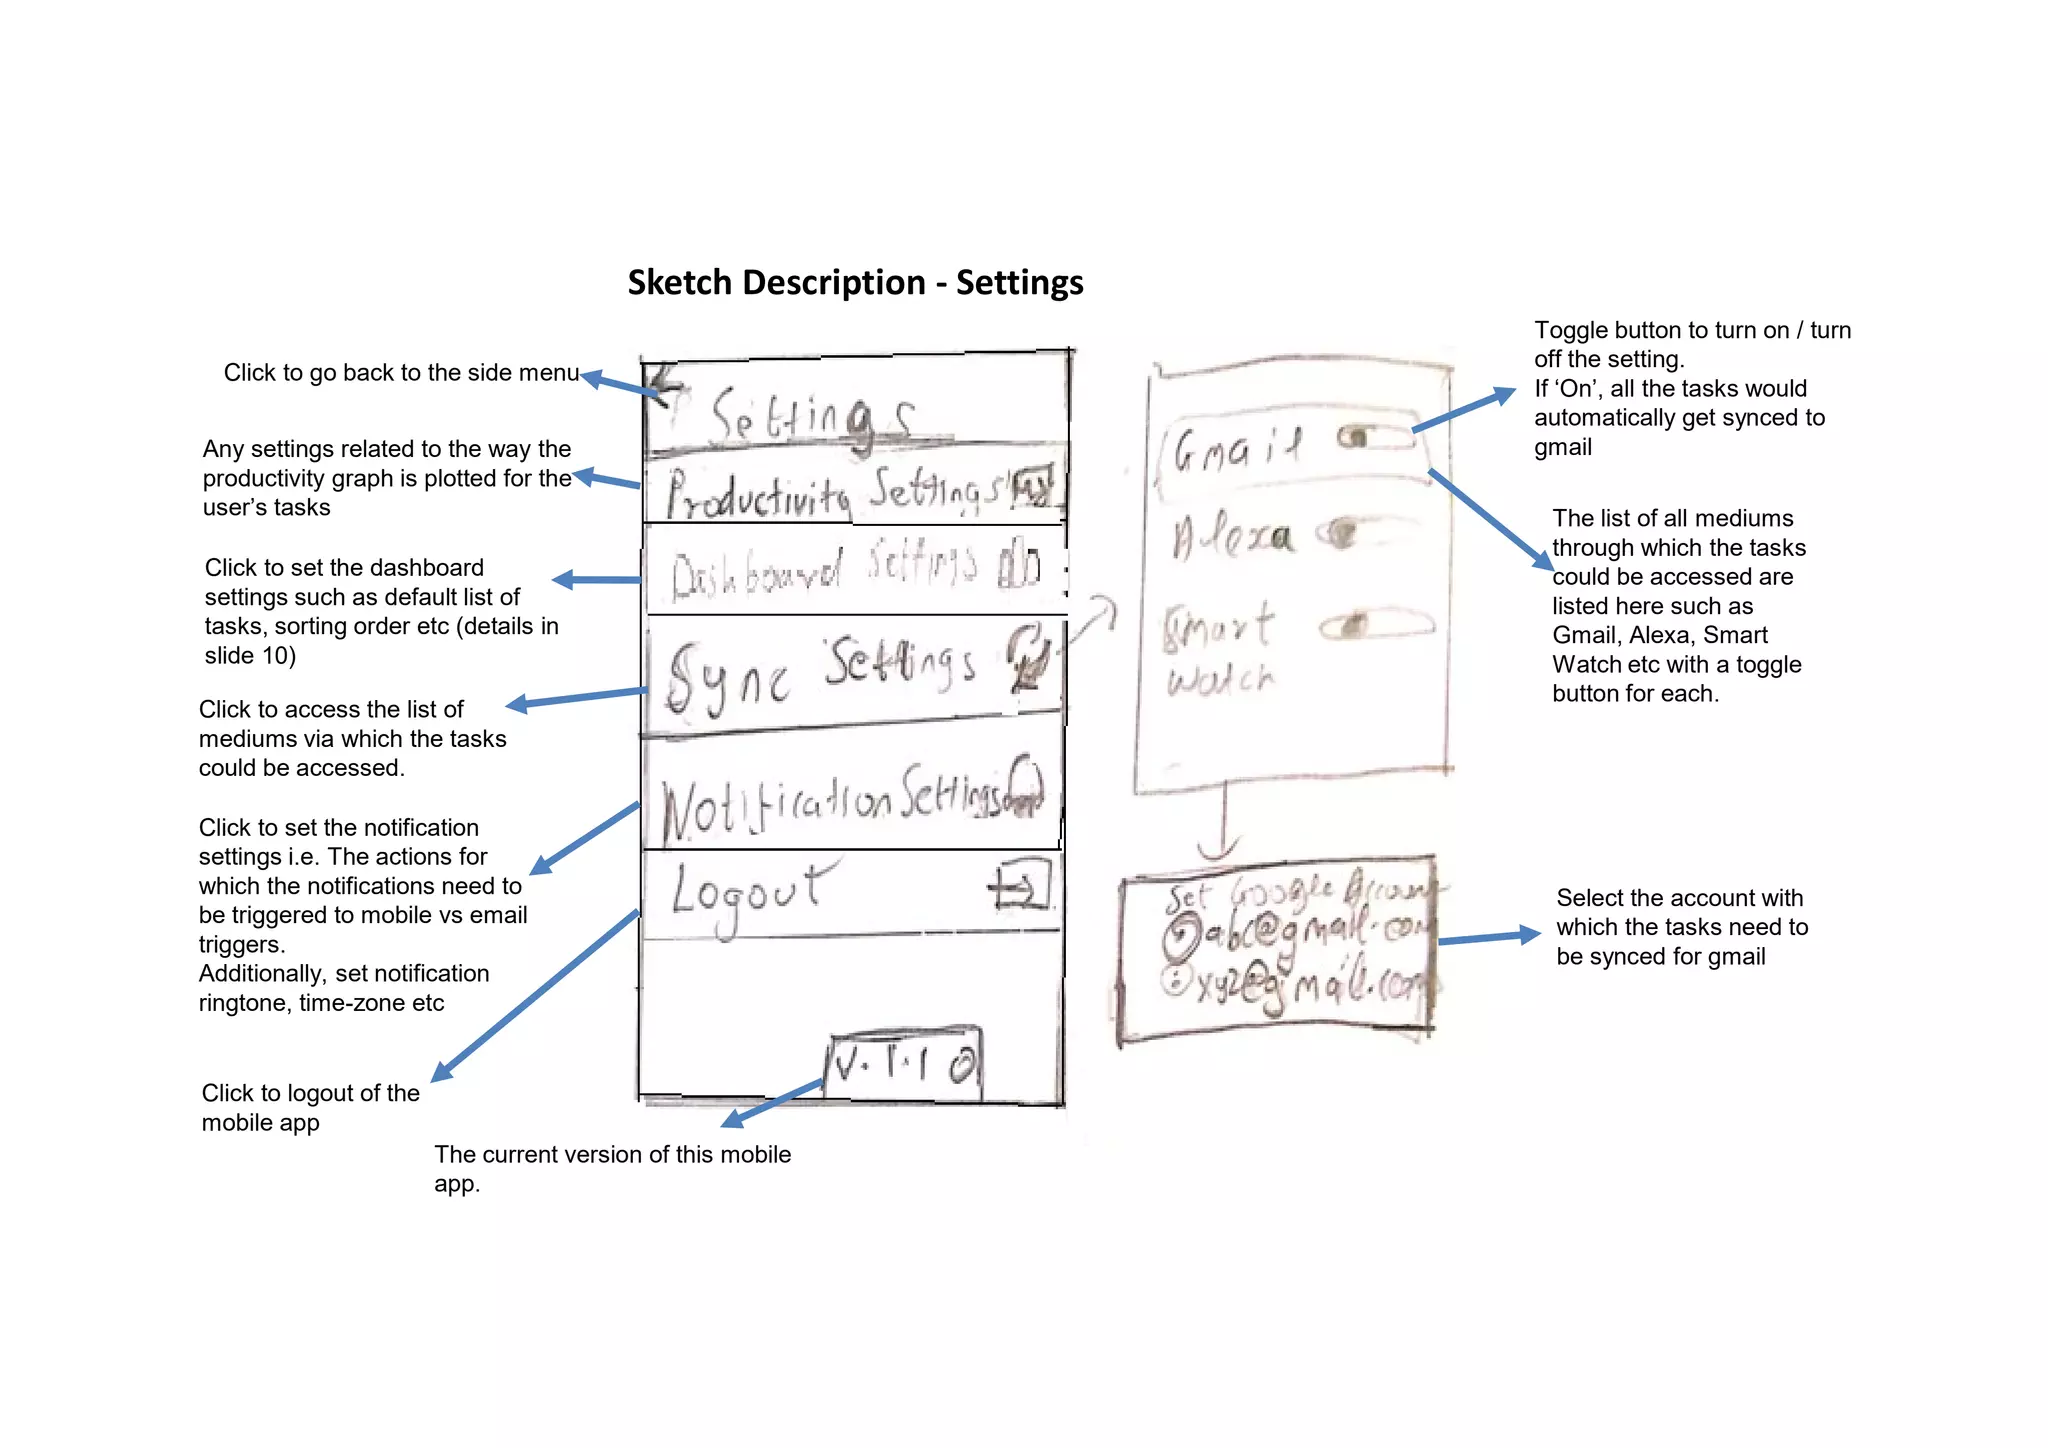 Sketch Description - Settings
Click to go back to the side menu
Any settings related to the way the
productivity graph is plotted for the
user’s tasks
Click to set the dashboard
settings such as default list of
tasks, sorting order etc (details in
slide 10)
Click to access the list of
mediums via which the tasks
could be accessed.
Click to set the notification
settings i.e. The actions for
which the notifications need to
be triggered to mobile vs email
triggers.
Additionally, set notification
ringtone, time-zone etc
Click to logout of the
mobile app
The current version of this mobile
app.
Settings
Productivity Settings
Dashboard Settings
Sync Settings
Notification Settings
Logout
V.1.1
Gmail
Alexa
Smart
Watch
Set Google Account
abc@gmail.com
xyz@gmail.com
Toggle button to turn on / turn
off the setting.
If ‘On’, all the tasks would
automatically get synced to
gmail
The list of all mediums
through which the tasks
could be accessed are
listed here such as
Gmail, Alexa, Smart
Watch etc with a toggle
button for each.
Select the account with
which the tasks need to
be synced for gmail